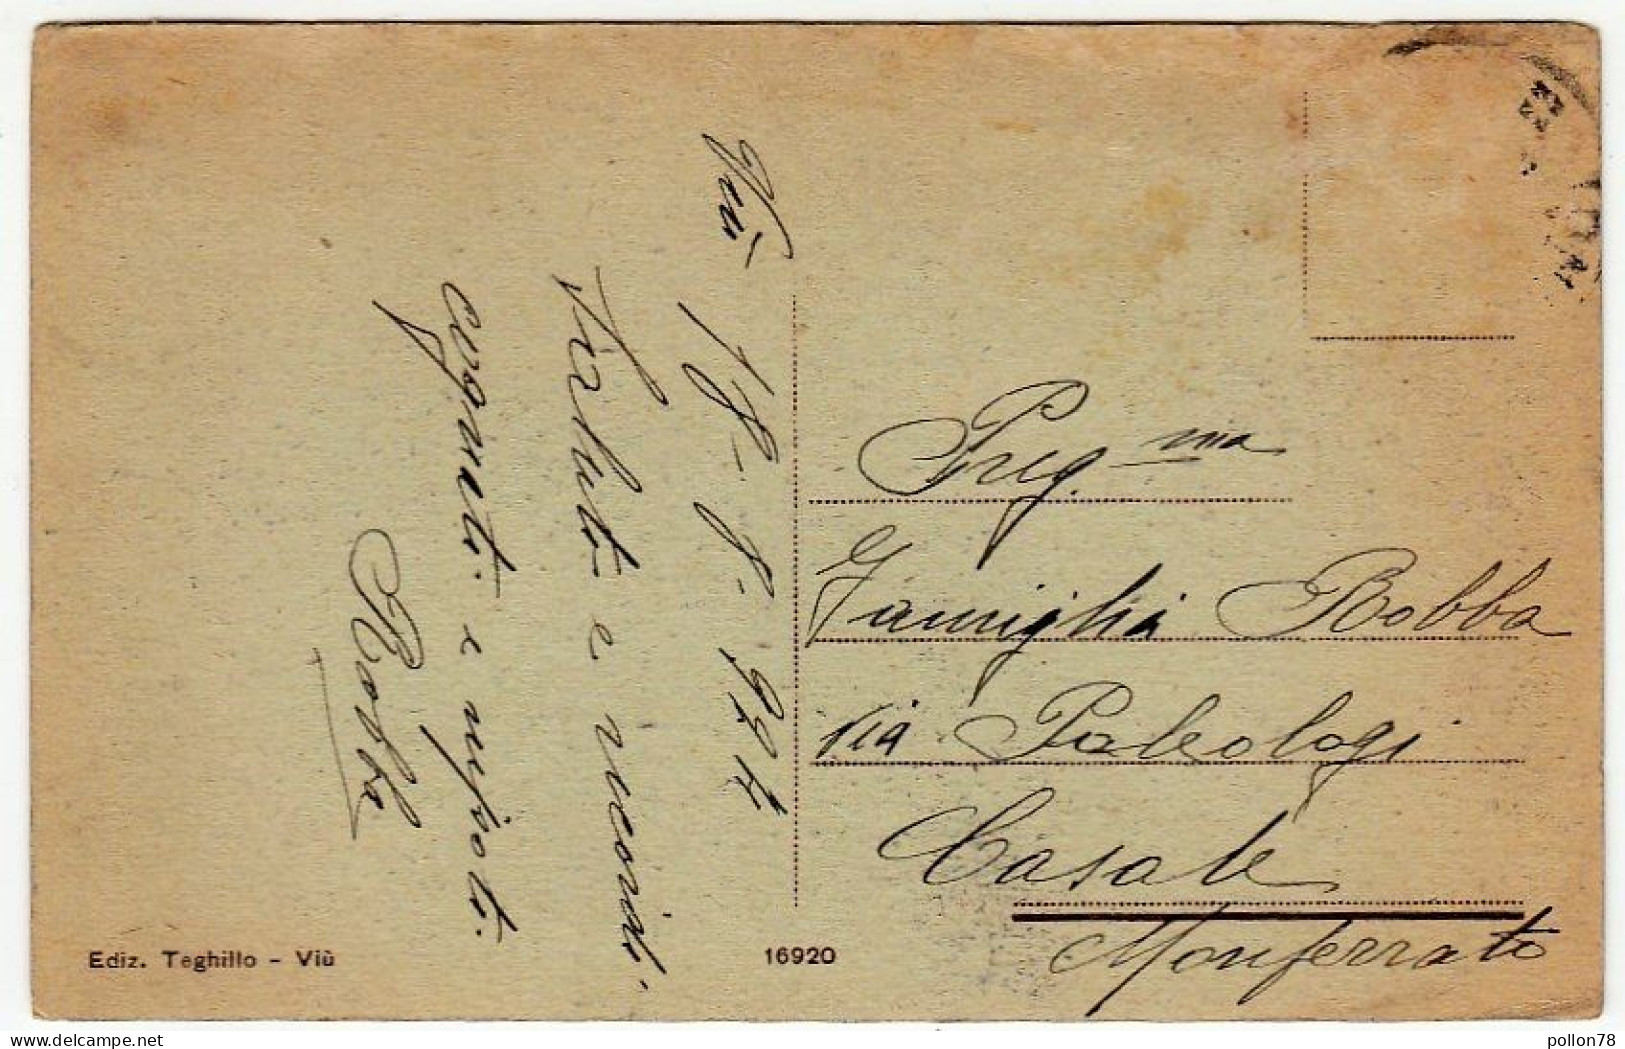 Viù 18-8-924
Saluti e ricordi
cognati e nipoti.
Bobba
Preg.ma
Famiglia Bobba
via Paleologi
Casale
Monferrato
Ediz. Teghillo - Viù
16920
www.delcampe.net
pollon78